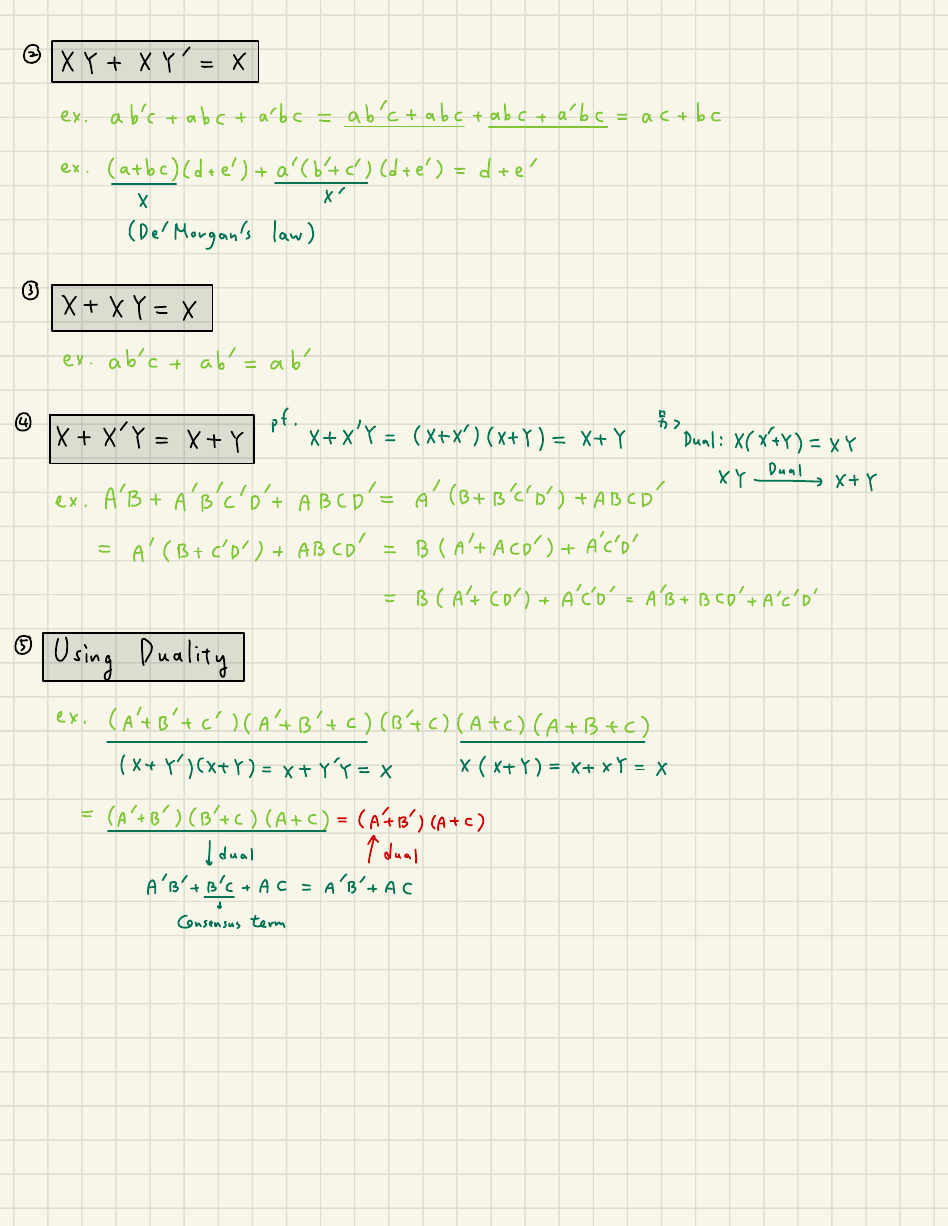 ② XY + XY′ = X
ex. ab′c + abc + a′bc = ab′c + abc + abc + a′bc = ac + bc
ex. (a+bc)(d+e′) + a′(b′+c′)(d+e′) = d+e′
X X′
(De′Morgan′s law)
③ X + XY = X
ex. ab′c + ab′ = ab′
④ X + X′Y = X+Y pf. X+X′Y = (X+X′)(X+Y) = X+Y
Dual: X(X′+Y) = XY
XY Dual → X+Y
ex. A′B + A′B′C′D′ + ABCD′ = A′(B+B′C′D′) + ABCD′
= A′(B+C′D′) + ABCD′ = B(A′+ACD′) + A′C′D′
= B(A′+CD′) + A′C′D′ = A′B + BCD′ + A′C′D′
⑤ Using Duality
ex. (A′+B′+C′)(A′+B′+C)(B′+C)(A+C)(A+B+C)
(X+Y′)(X+Y) = X+Y′Y = X X(X+Y) = X+XY = X
= (A′+B′)(B′+C)(A+C) = (A′+B′)(A+C)
↓ dual ↑ dual
A′B′ + B′C + AC = A′B′ + AC
↓
Consensus term